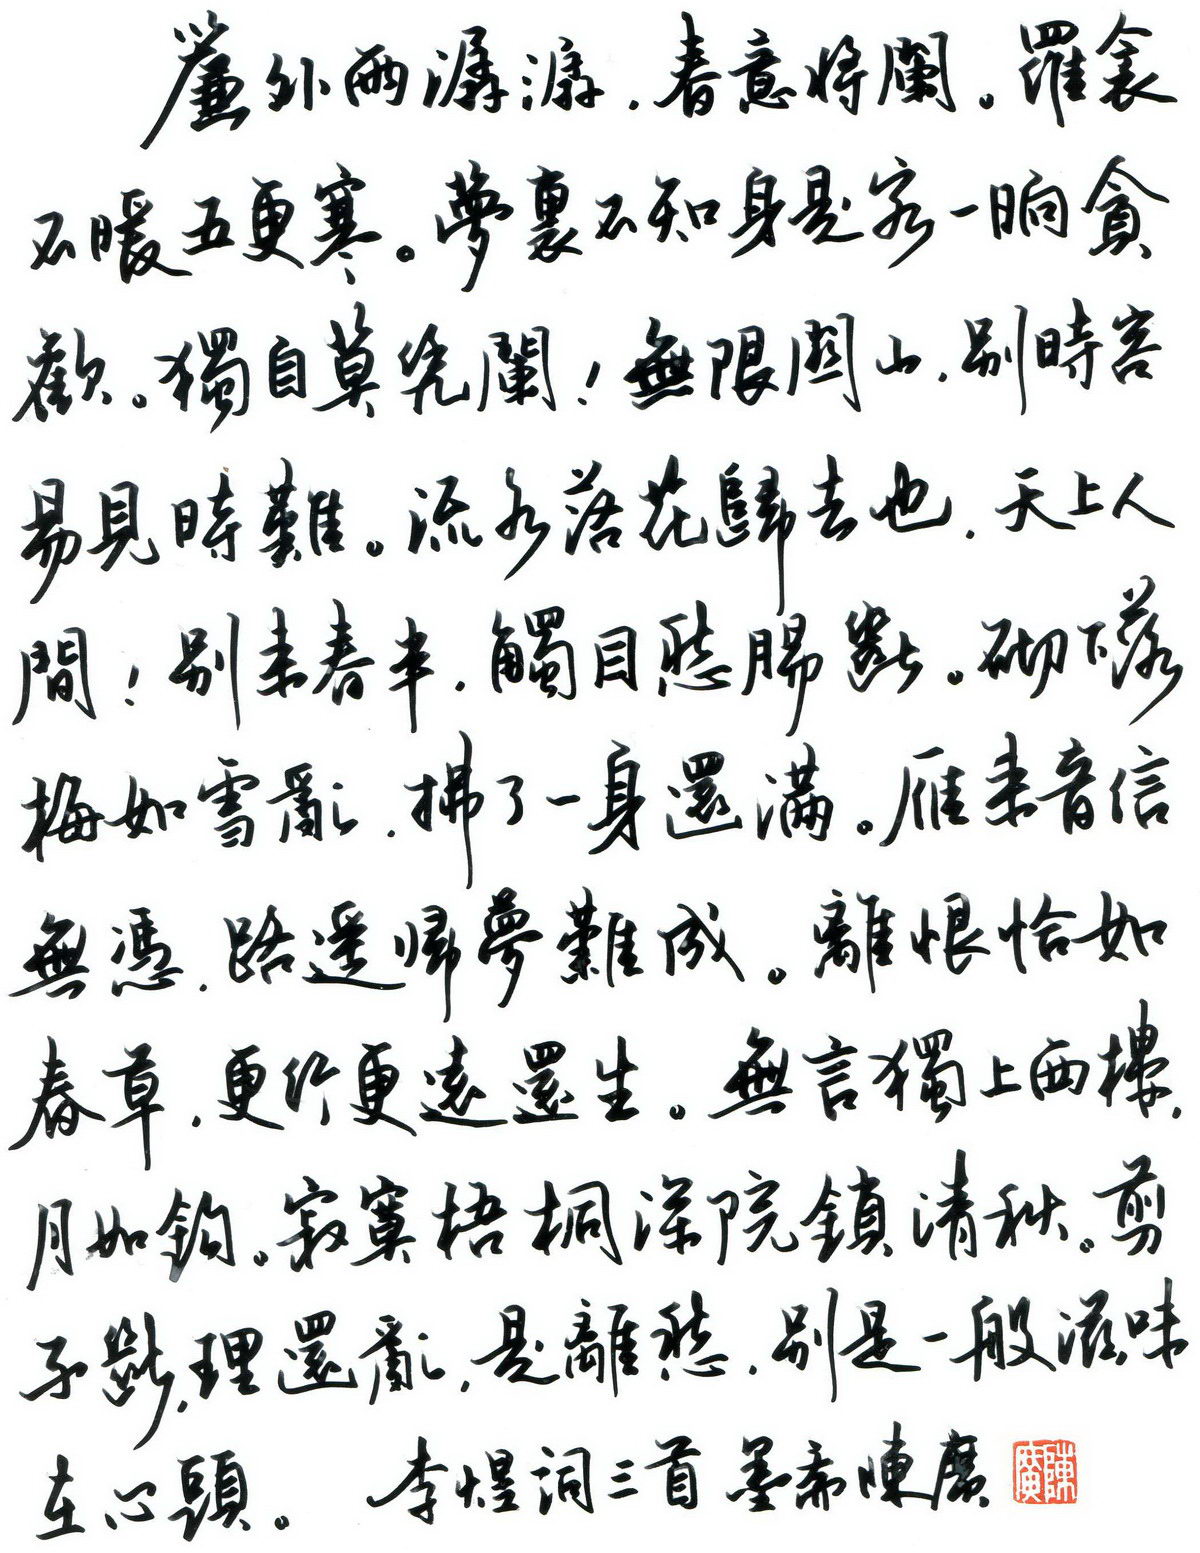 簾外雨潺潺，春意將闌。羅衾
不暖五更寒。夢裏不知身是客一晌貪
歡。獨自莫凭闌！無限關山，別時容
易見時難。流水落花歸去也，天上人
間！別來春半，觸目愁腸斷。砌下落
梅如雪亂，拂了一身還滿。雁來音信
無憑，路遥歸夢難成。離恨恰如
春草，更行更遠還生。無言獨上西樓，
月如鉤。寂寞梧桐深院鎖清秋。剪
不斷，理還亂，是離愁，別是一般滋味
在心頭。 李煜詞三首 墨齋陳廣
陳廣